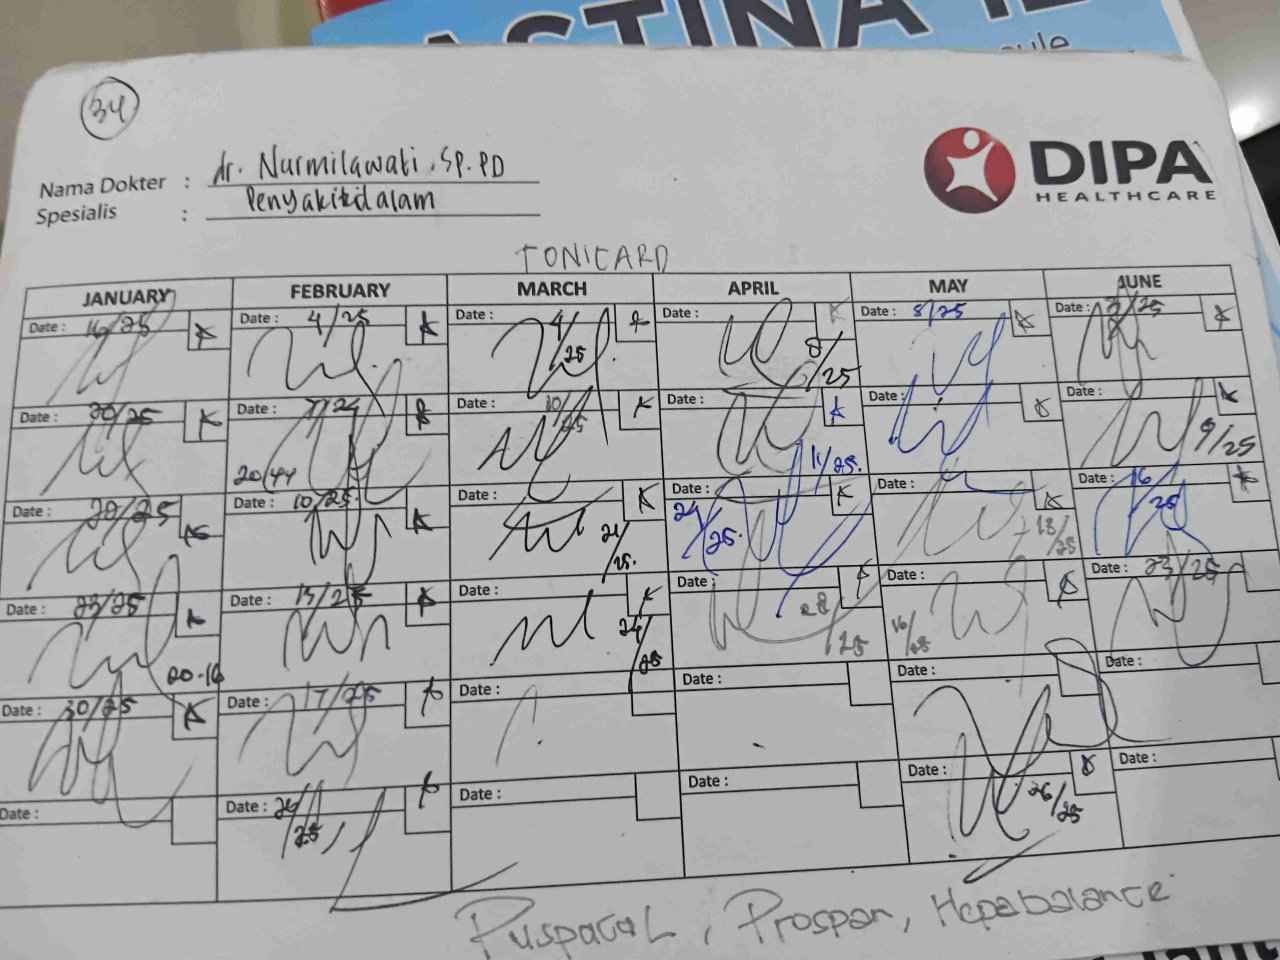 ASTINA
34
DIPA
HEALTHCARE
Nama Dokter : dr. Nurmilawati, Sp.PD
Spesialis : Penyakitdalam
TONICARD
JANUARY FEBRUARY MARCH APRIL MAY JUNE
Date : 16/25 Date : 4/25 Date : 4/25 Date : 8/25 Date : 8/25 Date : /25
Date : 20/25 Date : 7/24 Date : 10/25 Date : 11/25. Date : Date : 9/25
20/44
Date : 20/25 Date : 10/25 Date : 21/25. Date : 24/25. Date : 13/25 Date : 16/25
Date : 23/25 Date : 13/25 Date : 24/25 Date : 28/25 Date : 16/25 Date : 23/25
20.16
Date : 30/25 Date : 17/25 Date : Date : Date : Date :
Date : Date : 26/25 Date : Date : Date : 26/25 Date :
Puspacol, Prospan, Hepabalance